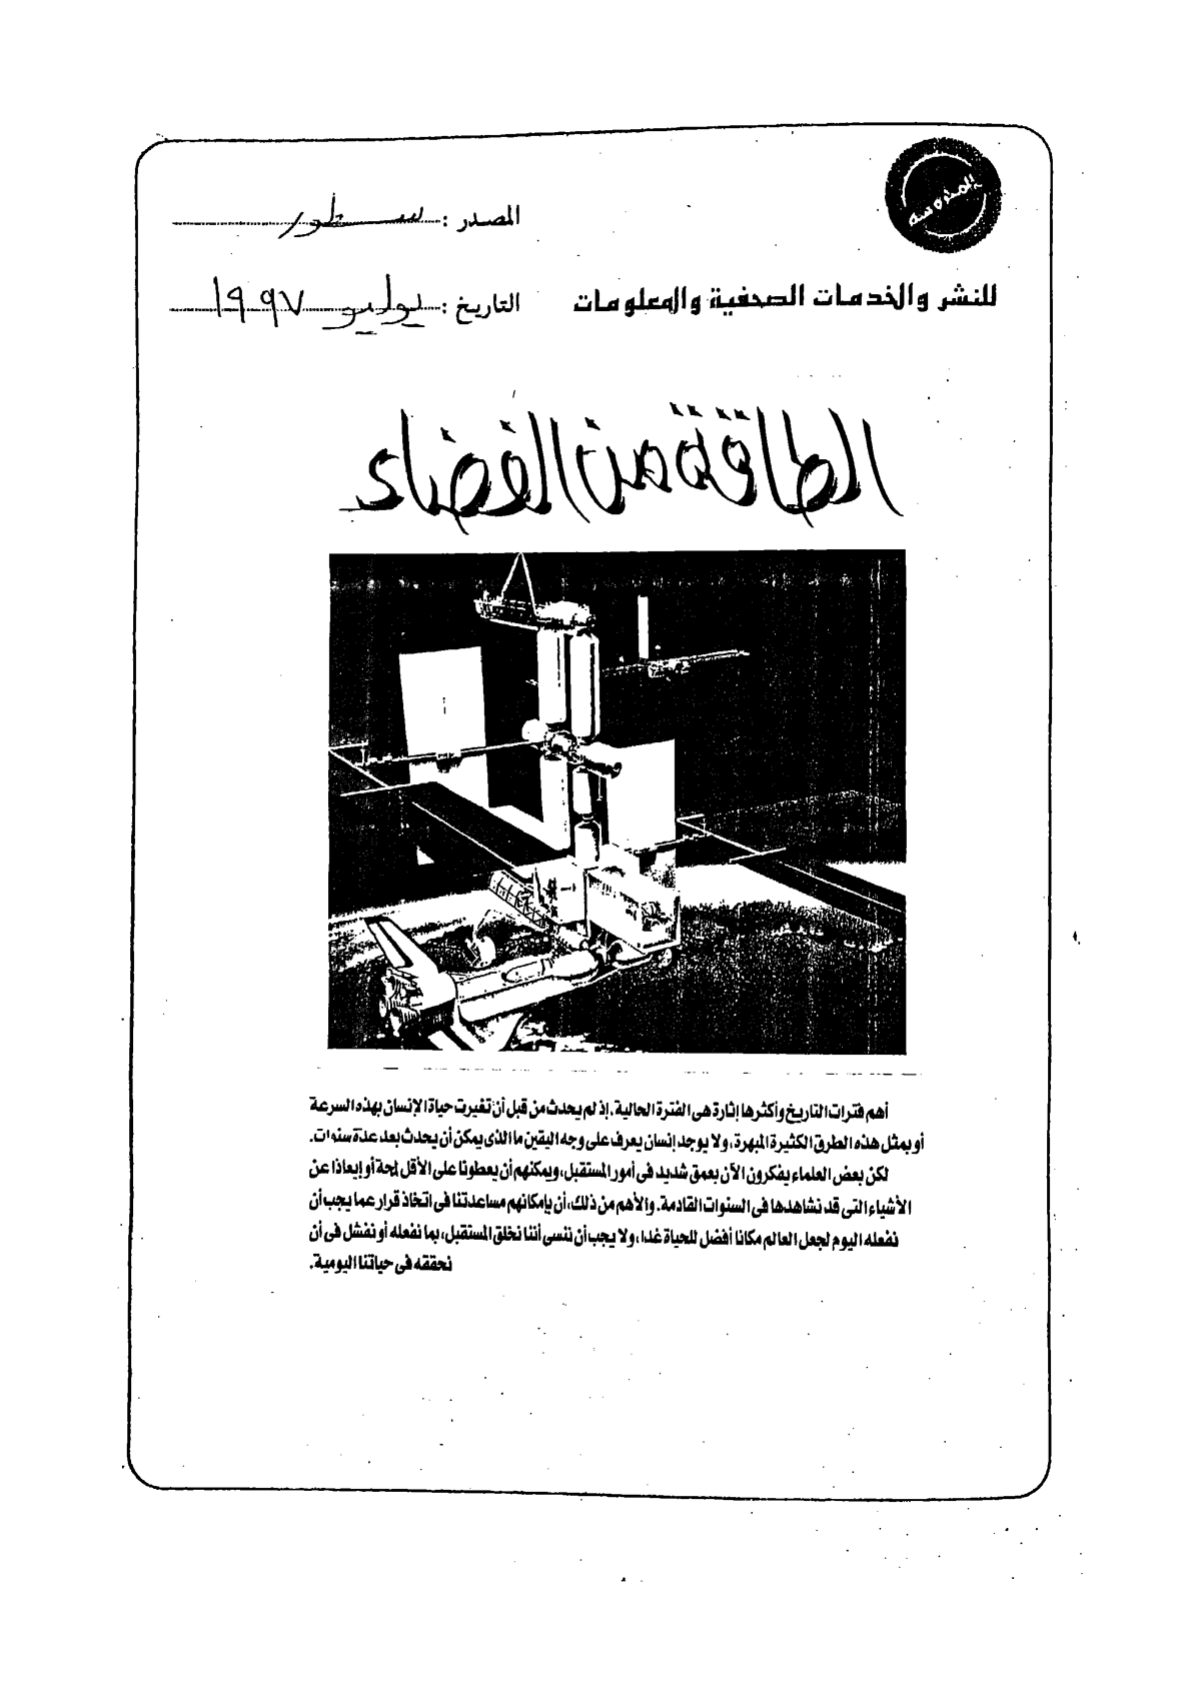 المصدر : سطور
للنشر والخدمات الصحفية والمعلومات
التاريخ : يوليو ١٩٩٧
الطاقة من الفضاء
أهم فترات التاريخ وأكثرها إثارة هى الفترة الحالية، إذ لم يحدث من قبل أن تغيرت حياة الإنسان بهذه السرعة
أو بمثل هذه الطرق الكثيرة المبهرة، ولا يوجد إنسان يعرف على وجه اليقين ما الذى يمكن أن يحدث بعد عدة سنوات.
لكن بعض العلماء يفكرون الآن بعمق شديد فى أمور المستقبل، ويمكنهم أن يعطونا على الأقل لمحة أو إيعازا عن
الأشياء التى قد نشاهدها فى السنوات القادمة. والأهم من ذلك، أن بإمكانهم مساعدتنا فى اتخاذ قرار عما يجب أن
نفعله اليوم لجعل العالم مكانا أفضل للحياة غدا، ولا يجب أن ننسى أننا نخلق المستقبل، بما نفعله أو نفشل فى أن
نحققه فى حياتنا اليومية.